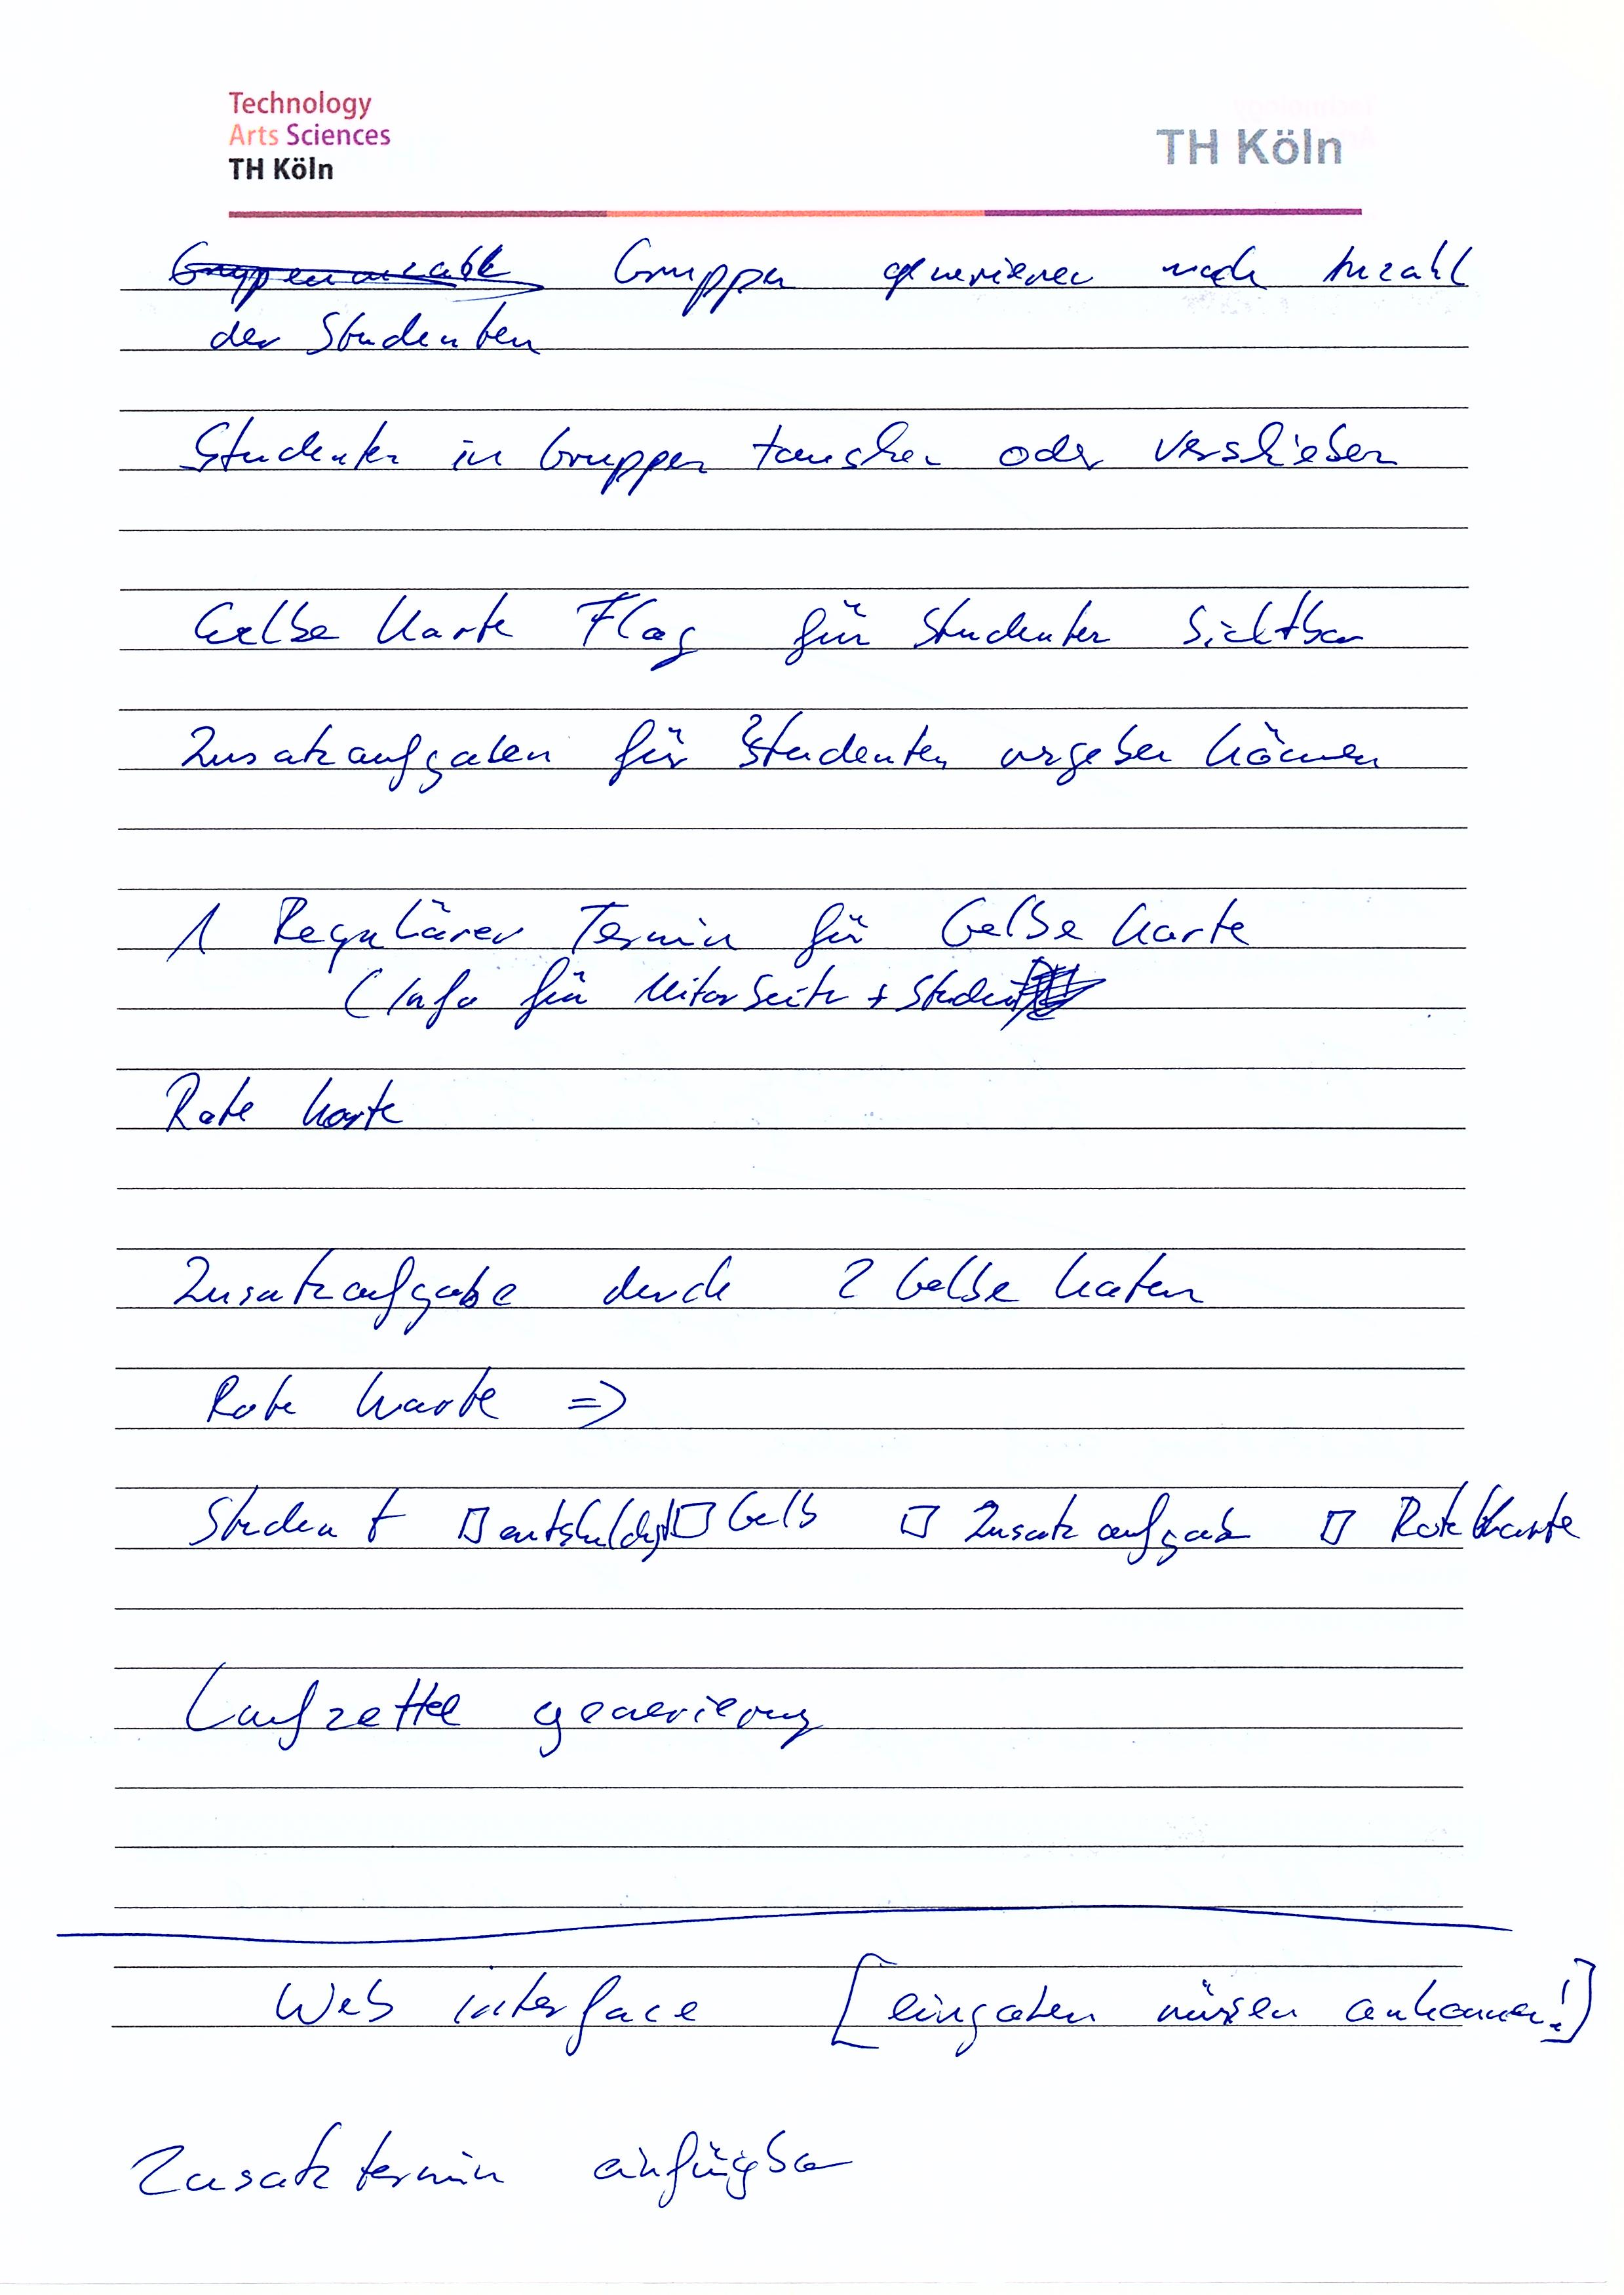 Technology
Arts Sciences
TH Köln
TH Köln
Gruppenanzahl Gruppen generieren nach Anzahl
der Studenten
Studenten in Gruppen tauschen oder verschieben
Gelbe Karte Flag für Studenten sichtbar
Zusatzaufgaben für Studenten vergeben können
1 Regulärer Termin für Gelbe Karte
(Info für Mitarbeiter + Student
Rote Karte
Zusatzaufgabe durch 2 Gelbe Karten
Rote Karte =>
Student □ entschuldigt □ Gelb □ Zusatzaufgabe □ Rote Karte
Laufzettel generierung
Web interface [eingaben müssen ankommen!]
Zusatztermin einfügbar